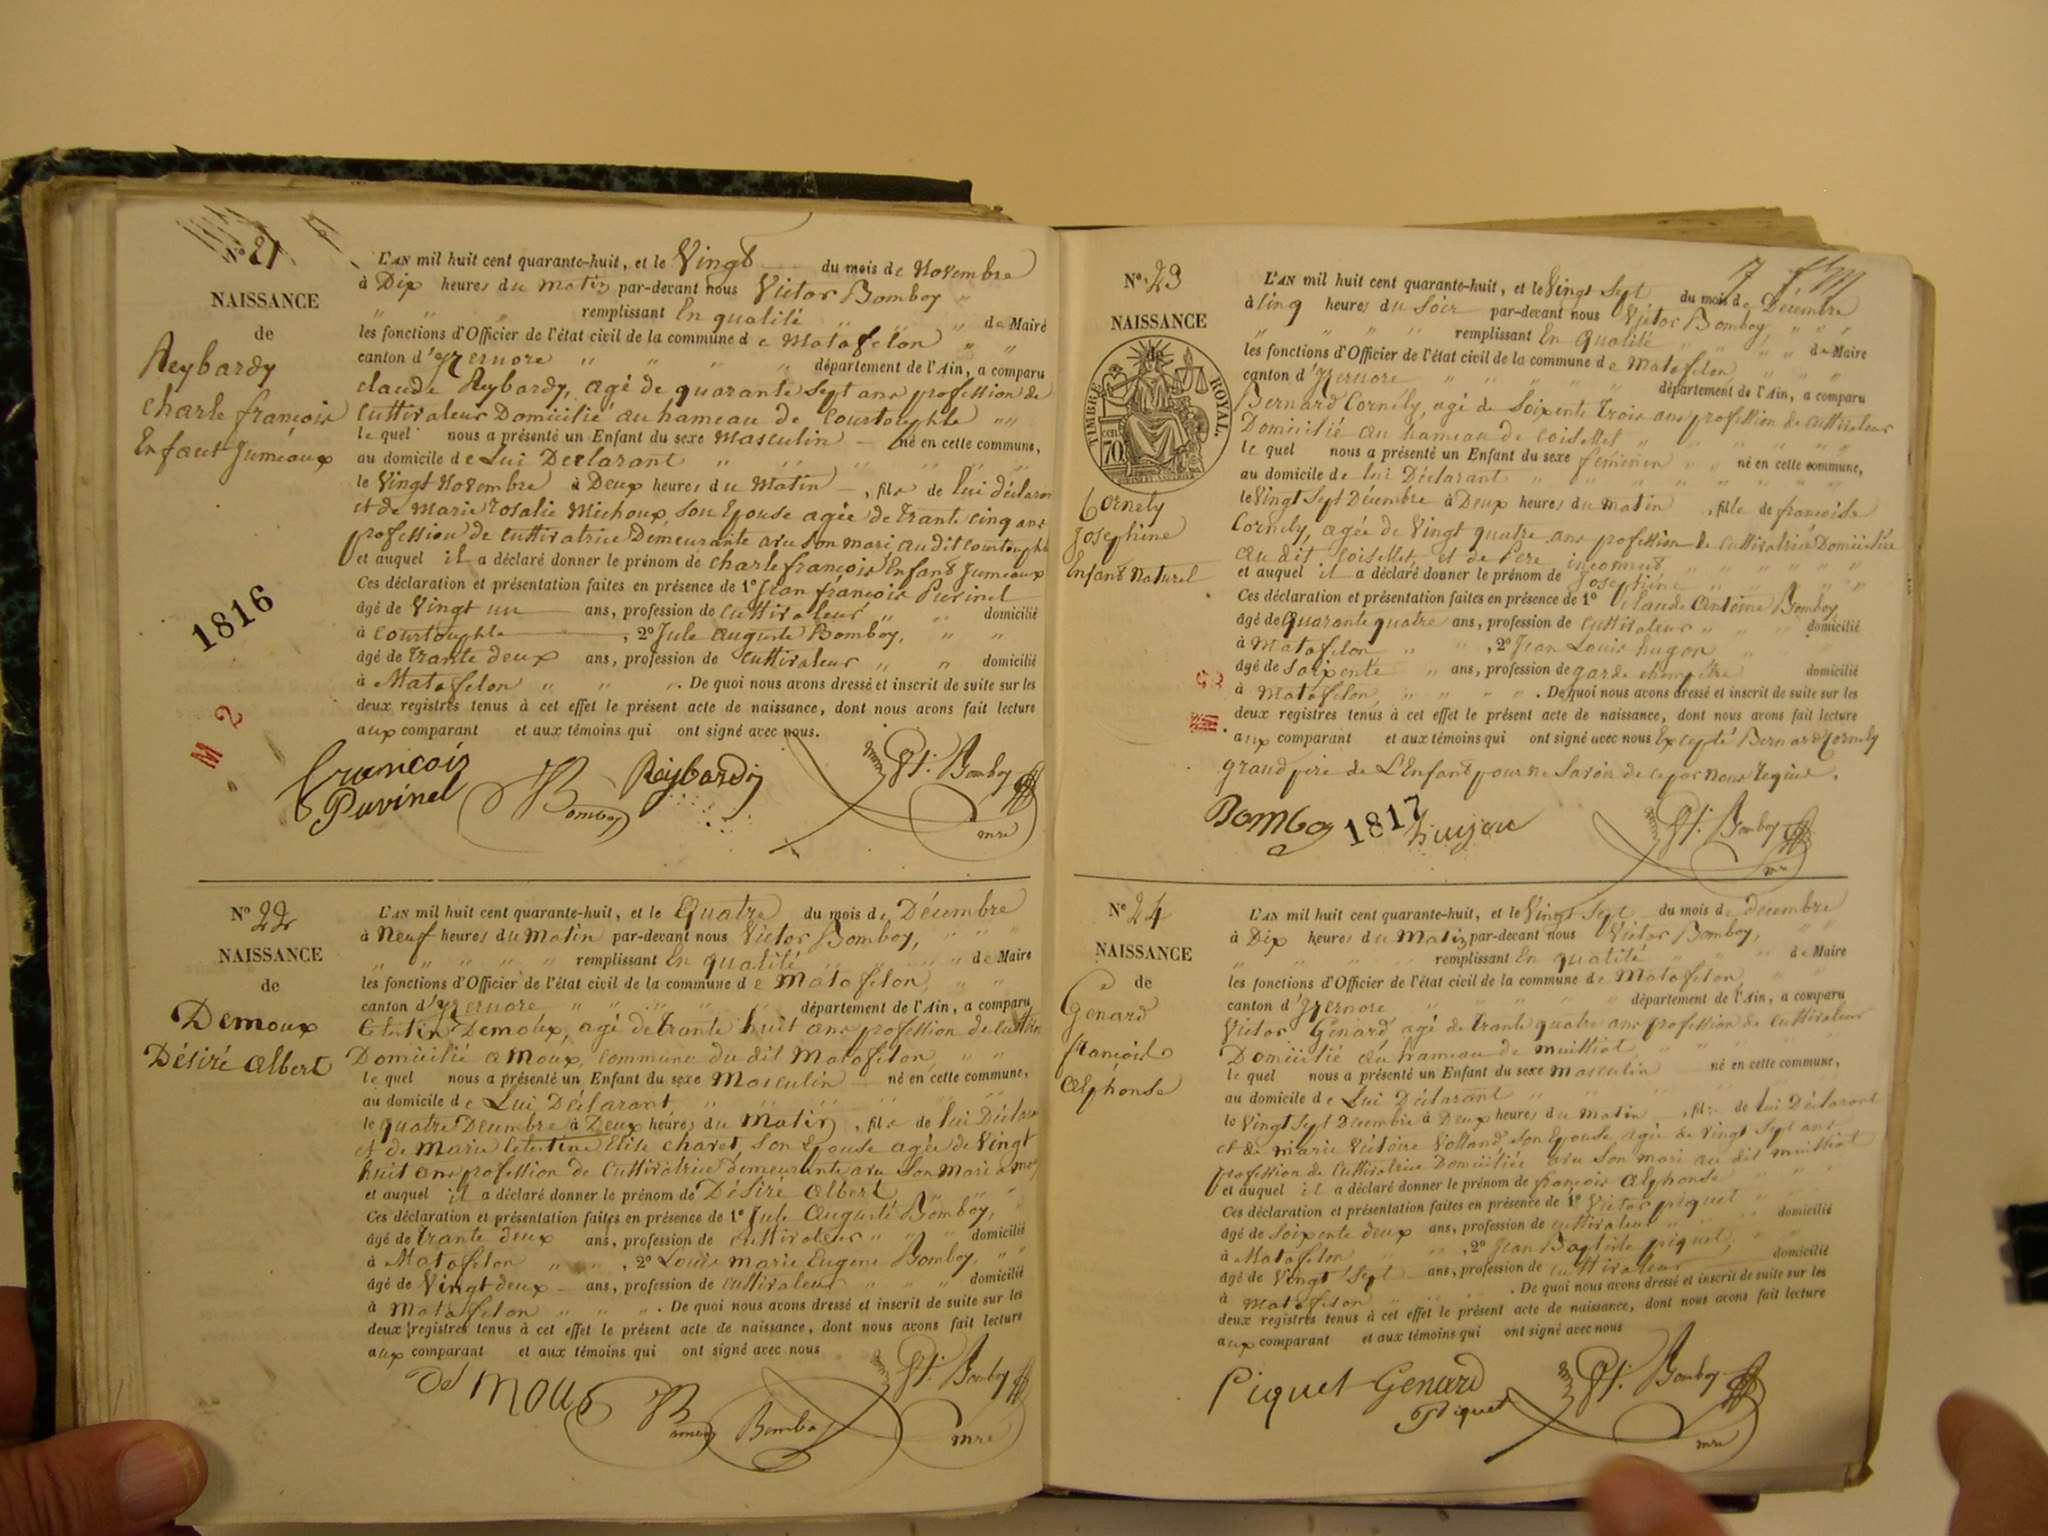 N° 21
NAISSANCE
de
Reybardy
charle françois
Enfant Jumeaux
1816
M 2
L'AN mil huit cent quarante-huit, et le Vingt du mois de Novembre
à Dix heures du matin par-devant nous Victor Bomboy "
" " " remplissant En qualité " " " de Maire
les fonctions d'Officier de l'état civil de la commune de Matafelon " "
canton d'Yzernore " " " département de l'Ain, a comparu
claude Reybardy, agé de quarante Sept ans profession de
Cuttivateur Domicilié au hameau de Courtouphle " "
le quel nous a présenté un Enfant du sexe Masculin né en cette commune,
au domicile de Lui Declarant " " " " "
le Vingt Novembre à Deux heures du Matin , fils de lui déclaran
et de Marie Rosalie Michoux, Son Epouse agée de trante cinq ans
profession de Cuttivatrice Demeurante avec Son mari au dit Courtouphle
et auquel il a déclaré donner le prénom de charle françois Enfant Jumeaux
Ces déclaration et présentation faites en présence de 1° Jean françois Puvinel
âgé de Vingt un ans, profession de cuttivateur " " domicilié
à Courtouphle , 2° Jule Auguste Bomboy, " "
âgé de trante deux ans, profession de Cuttivateur " " domicilié
à Matafelon " " " . De quoi nous avons dressé et inscrit de suite sur les
deux registres tenus à cet effet le présent acte de naissance, dont nous avons fait lecture
aux comparant et aux témoins qui ont signé avec nous.
francois
Puvinel
Bomboy
Reybardy
Bomboy
mre
N° 22
NAISSANCE
de
Demoux
Désiré Albert
L'AN mil huit cent quarante-huit, et le Quatre du mois de Décembre
à Neuf heures du Matin par-devant nous Victor Bomboy, " " "
" " " " " remplissant En qualité " " " de Maire
les fonctions d'Officier de l'état civil de la commune de Matafelon, " "
canton d'Yzernore " " " " " département de l'Ain, a comparu
Demoux, agé de trante huit ans profession de cuttiv
Domicilié a Moux, Commune du dit Matafelon " "
le quel nous a présenté un Enfant du sexe Masculin né en cette commune,
au domicile de Lui Déclarant " " " " "
le quatre Decembre à Deux heures du Matin , fils de lui Déclara
et de Marie Celestine Elise charet, Son Epouse agée de Vingt
huit ans profession de Cuttivatrice demeurante avec Son Mari a
et auquel il a déclaré donner le prénom de Désiré Albert, " " "
Ces déclaration et présentation faites en présence de 1° Jule Auguste Bomboy, "
âgé de trante deux ans, profession de cuttivateur " " " domicilié
à Matafelon " " " , 2° Louis Marie Eugene Bomboy, " "
âgé de Vingt deux ans, profession de Cuttivateur " " " domicilié
à Matafelon " " " . De quoi nous avons dressé et inscrit de suite sur les
deux registres tenus à cet effet le présent acte de naissance, dont nous avons fait lecture
aux comparant et aux témoins qui ont signé avec nous
De mous
Bomboy
Bomboy
Bomboy
mre
N° 23
NAISSANCE
de
TIMBRE ROYAL.
70 cent
Cornely
Josephine
Enfant Naturel
L'AN mil huit cent quarante-huit, et le Vingt Sept du mois de Décembre
à Cinq heures du Soir par-devant nous Victor Bomboy, " " "
" " " " remplissant En Qualité " " " " de Maire
les fonctions d'Officier de l'état civil de la commune de Matafelon " " "
canton d'Yzernore " " " " " " département de l'Ain, a comparu
Bernard Cornély, agé de Soixente trois ans profession de cuttivateur
Domicilié au hameau de Coisellet " " " " "
le quel nous a présenté un Enfant du sexe féminin " " né en cette commune,
au domicile de lui Déclarant " " " " " " "
le Vingt Sept Décembre à Deux heures du matin , fille de françoise
Cornely, agée de Vingt quatre ans profession de Cuttivatrice Domiciliée
au dit Coisellet, et de Pere inconnus " " " " "
et auquel il a déclaré donner le prénom de Josephine " " " " "
Ces déclaration et présentation faites en présence de 1° Claude Antoine Bomboy
âgé de Quarante quatre ans, profession de Cuttivateur " " " domicilié
à Matafelon " " , 2° Jean Louis hugon "
âgé de Soixente " ans, profession de garde champêtre domicilié
à Matafelon, " " " " . De quoi nous avons dressé et inscrit de suite sur les
deux registres tenus à cet effet le présent acte de naissance, dont nous avons fait lecture
aux comparant et aux témoins qui ont signé avec nous Excepté Bernard Cornely
grand père de L'Enfant pour ne Savoir de ce par Nous requis.
Bomboy
1817
Bomboy
mre
N° 24
NAISSANCE
de
Genard
françois
Alphonse
L'AN mil huit cent quarante-huit, et le Vingt Sept du mois de décembre
à Dix heures du Matin par-devant nous Victor Bomboy, " "
" " " " remplissant En qualité " " " de Maire
les fonctions d'Officier de l'état civil de la commune de Matafelon, " "
canton d'Yzernore " " " " " département de l'Ain, a comparu
Victor Genard, agé de trante quatre ans profession de Cuttivateur
Domicilié au hameau de Muittiat " " " " "
le quel nous a présenté un Enfant du sexe masculin né en cette commune,
au domicile de Lui Déclarant " " " " "
le Vingt Sept Décembre à Deux heures du Matin , fils de lui Déclarant
et de Marie Victoire Volland Son Epouse agée de Vingt Sept ans
profession de Cuttivatrice Domiciliée avec Son mari au dit Muittiat
et auquel il a déclaré donner le prénom de françois Alphonse " "
Ces déclaration et présentation faites en présence de 1° Victor piquet " "
âgé de Soixente deux ans, profession de cuttivateur " " " domicilié
à Matafelon " " " , 2° Jean Baptiste piquet, " "
âgé de Vingt Sept ans, profession de cuttivateur domicilié
à Matafelon " " " . De quoi nous avons dressé et inscrit de suite sur les
deux registres tenus à cet effet le présent acte de naissance, dont nous avons fait lecture
aux comparant et aux témoins qui ont signé avec nous
Piquet Genard
Piquet
Bomboy
mre